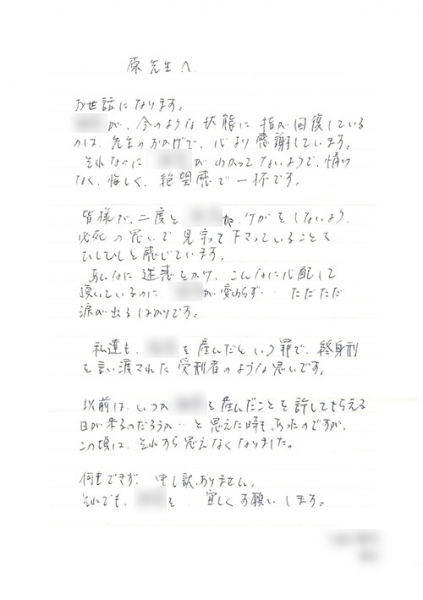 原先生へ
お世話になります。
が、今のような状態に指が回復している
のは、先生のおかげで、心より感謝しています。
それなのに が わかってないようで、情け
なく、悔しく、絶望感で一杯です。
皆様が、二度と が、ケガをしないよう、
必死の思いで見守って下さっていることを
ひしひしと感じています。
あんなに迷惑をかけ、こんなに心配して
頂いているのに が変わらず… ただただ
涙が出るばかりです。
私達も、 を産んだという罪で、終身刑
を言い渡された受刑者のような思いです。
以前は、いつか を産んだことを許してもらえる
日が来るのだろうか…と思えた時も、あったのですが、
この頃は、それすら思えなくなりました。
何もできず、申し訳ありません。
それでも、 を、宜しくお願いします。